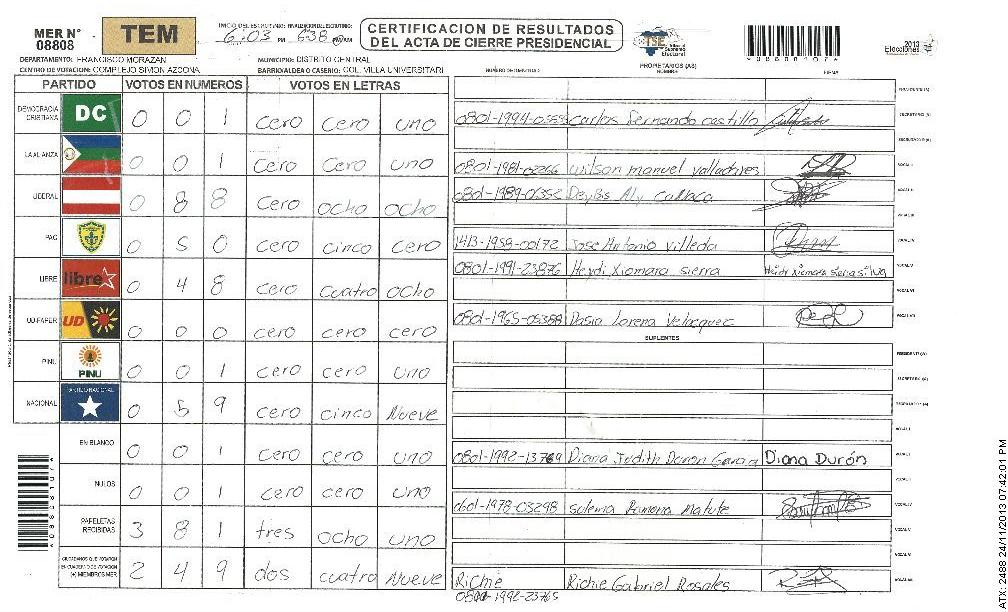 MER N° 08808
TEM
INICIO DEL ESCRUTINIO: FINALIZACION DEL ESCRUTINIO:
6:03 PM 638
CERTIFICACION DE RESULTADOS
DEL ACTA DE CIERRE PRESIDENCIAL
TSE Tribunal Supremo Electoral
2013
Elecciones
DEPARTAMENTO: FRANCISCO MORAZAN
MUNICIPIO: DISTRITO CENTRAL
CENTRO DE VOTACION: COMPLEJO SIMON AZCONA
BARRIO/ALDEA O CASERIO: COL. VILLA UNIVERSITARI
NUMERO DE IDENTIDAD
PROPIETARIOS (AS)
NOMBRE
FIRMA
PARTIDO VOTOS EN NUMEROS VOTOS EN LETRAS
DEMOCRACIA CRISTIANA DC 0 0 1 cero cero uno
LA ALIANZA 0 0 1 cero cero uno
LIBERAL 0 8 8 cero ocho ocho
PAC 0 5 0 cero cinco cero
LIBRE libre 0 4 8 cero cuatro ocho
UD-FAPER UD 0 0 0 cero cero cero
PINU PINU 0 0 1 cero cero uno
NACIONAL PARTIDO NACIONAL 0 5 9 cero cinco Nueve
EN BLANCO 0 0 1 cero cero uno
NULOS 0 0 1 cero cero uno
PAPELETAS RECIBIDAS 3 8 1 tres ocho uno
CIUDADANOS QUE VOTARON EN CUADERNO DE VOTACION (+) MIEMBROS MER 2 4 9 dos cuatro Nueve
PRESIDENTE (A)
Carlos Fernando castillo SECRETARIO (A)
ESCRUTADOR (A)
0801-1981-02266 wilson manuel valladares VOCAL I
0801-1989-01352 VOCAL II
VOCAL III
1413-1958-00172 Jose Antonio Villeda VOCAL IV
0801-1991-23876 Heydi Xiomara sierra VOCAL V
VOCAL VI
0801-1965-05388 Lorena Velacquez VOCAL VII
SUPLENTES
PRESIDENTE (A)
SECRETARIO (A)
ESCRUTADOR (A)
VOCAL I
Diana Judith Diana Durón VOCAL II
VOCAL III
0601-1978-03298 sulema Ramona Matute VOCAL IV
VOCAL V
VOCAL VI
Richie Richie Gabriel Rosales VOCAL VII
1992-23765
ATX-2488 24/11/2013 07:42:01 PM